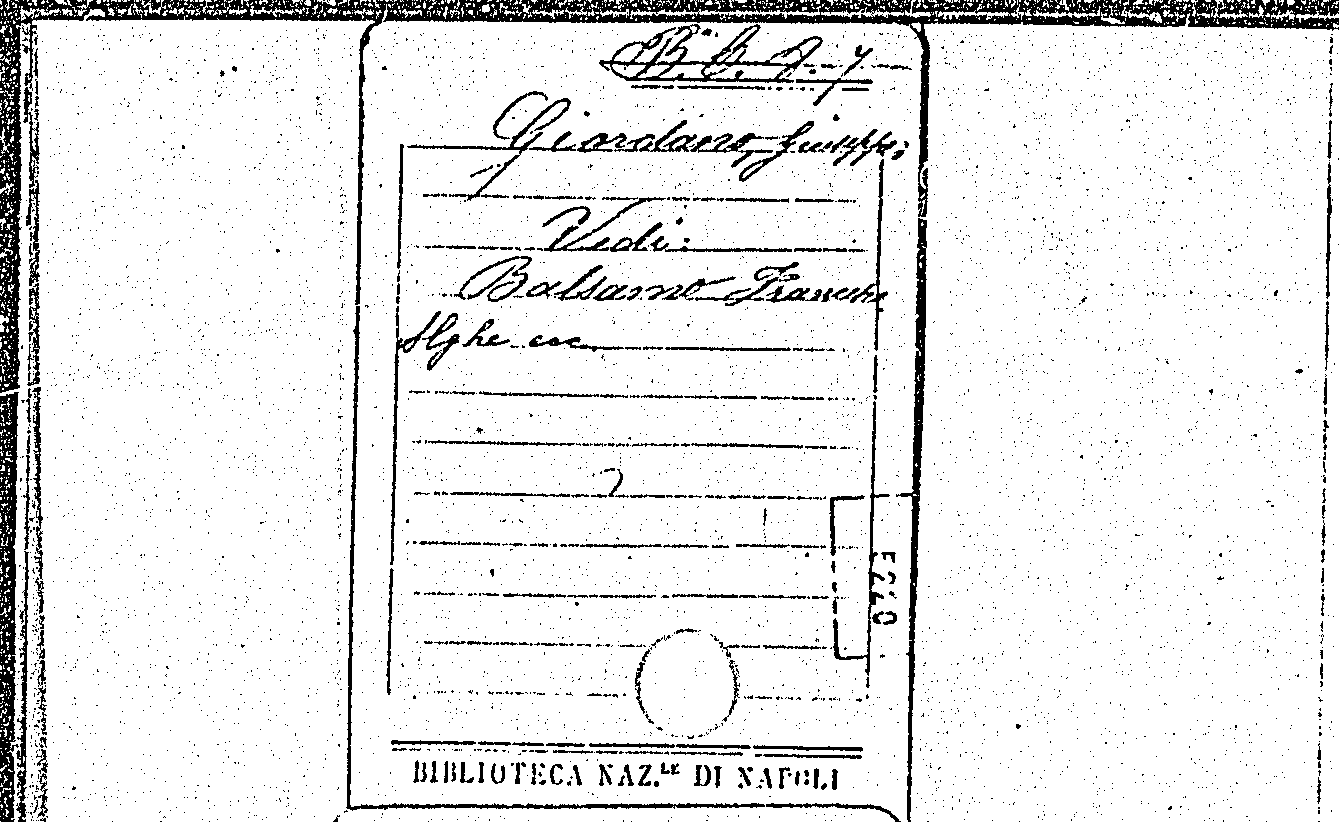 Giordano, Giuseppe
Vedi:
Balsamo Francesco
Alghe ecc.
BIBLIOTECA NAZ.LE DI NAPOLI